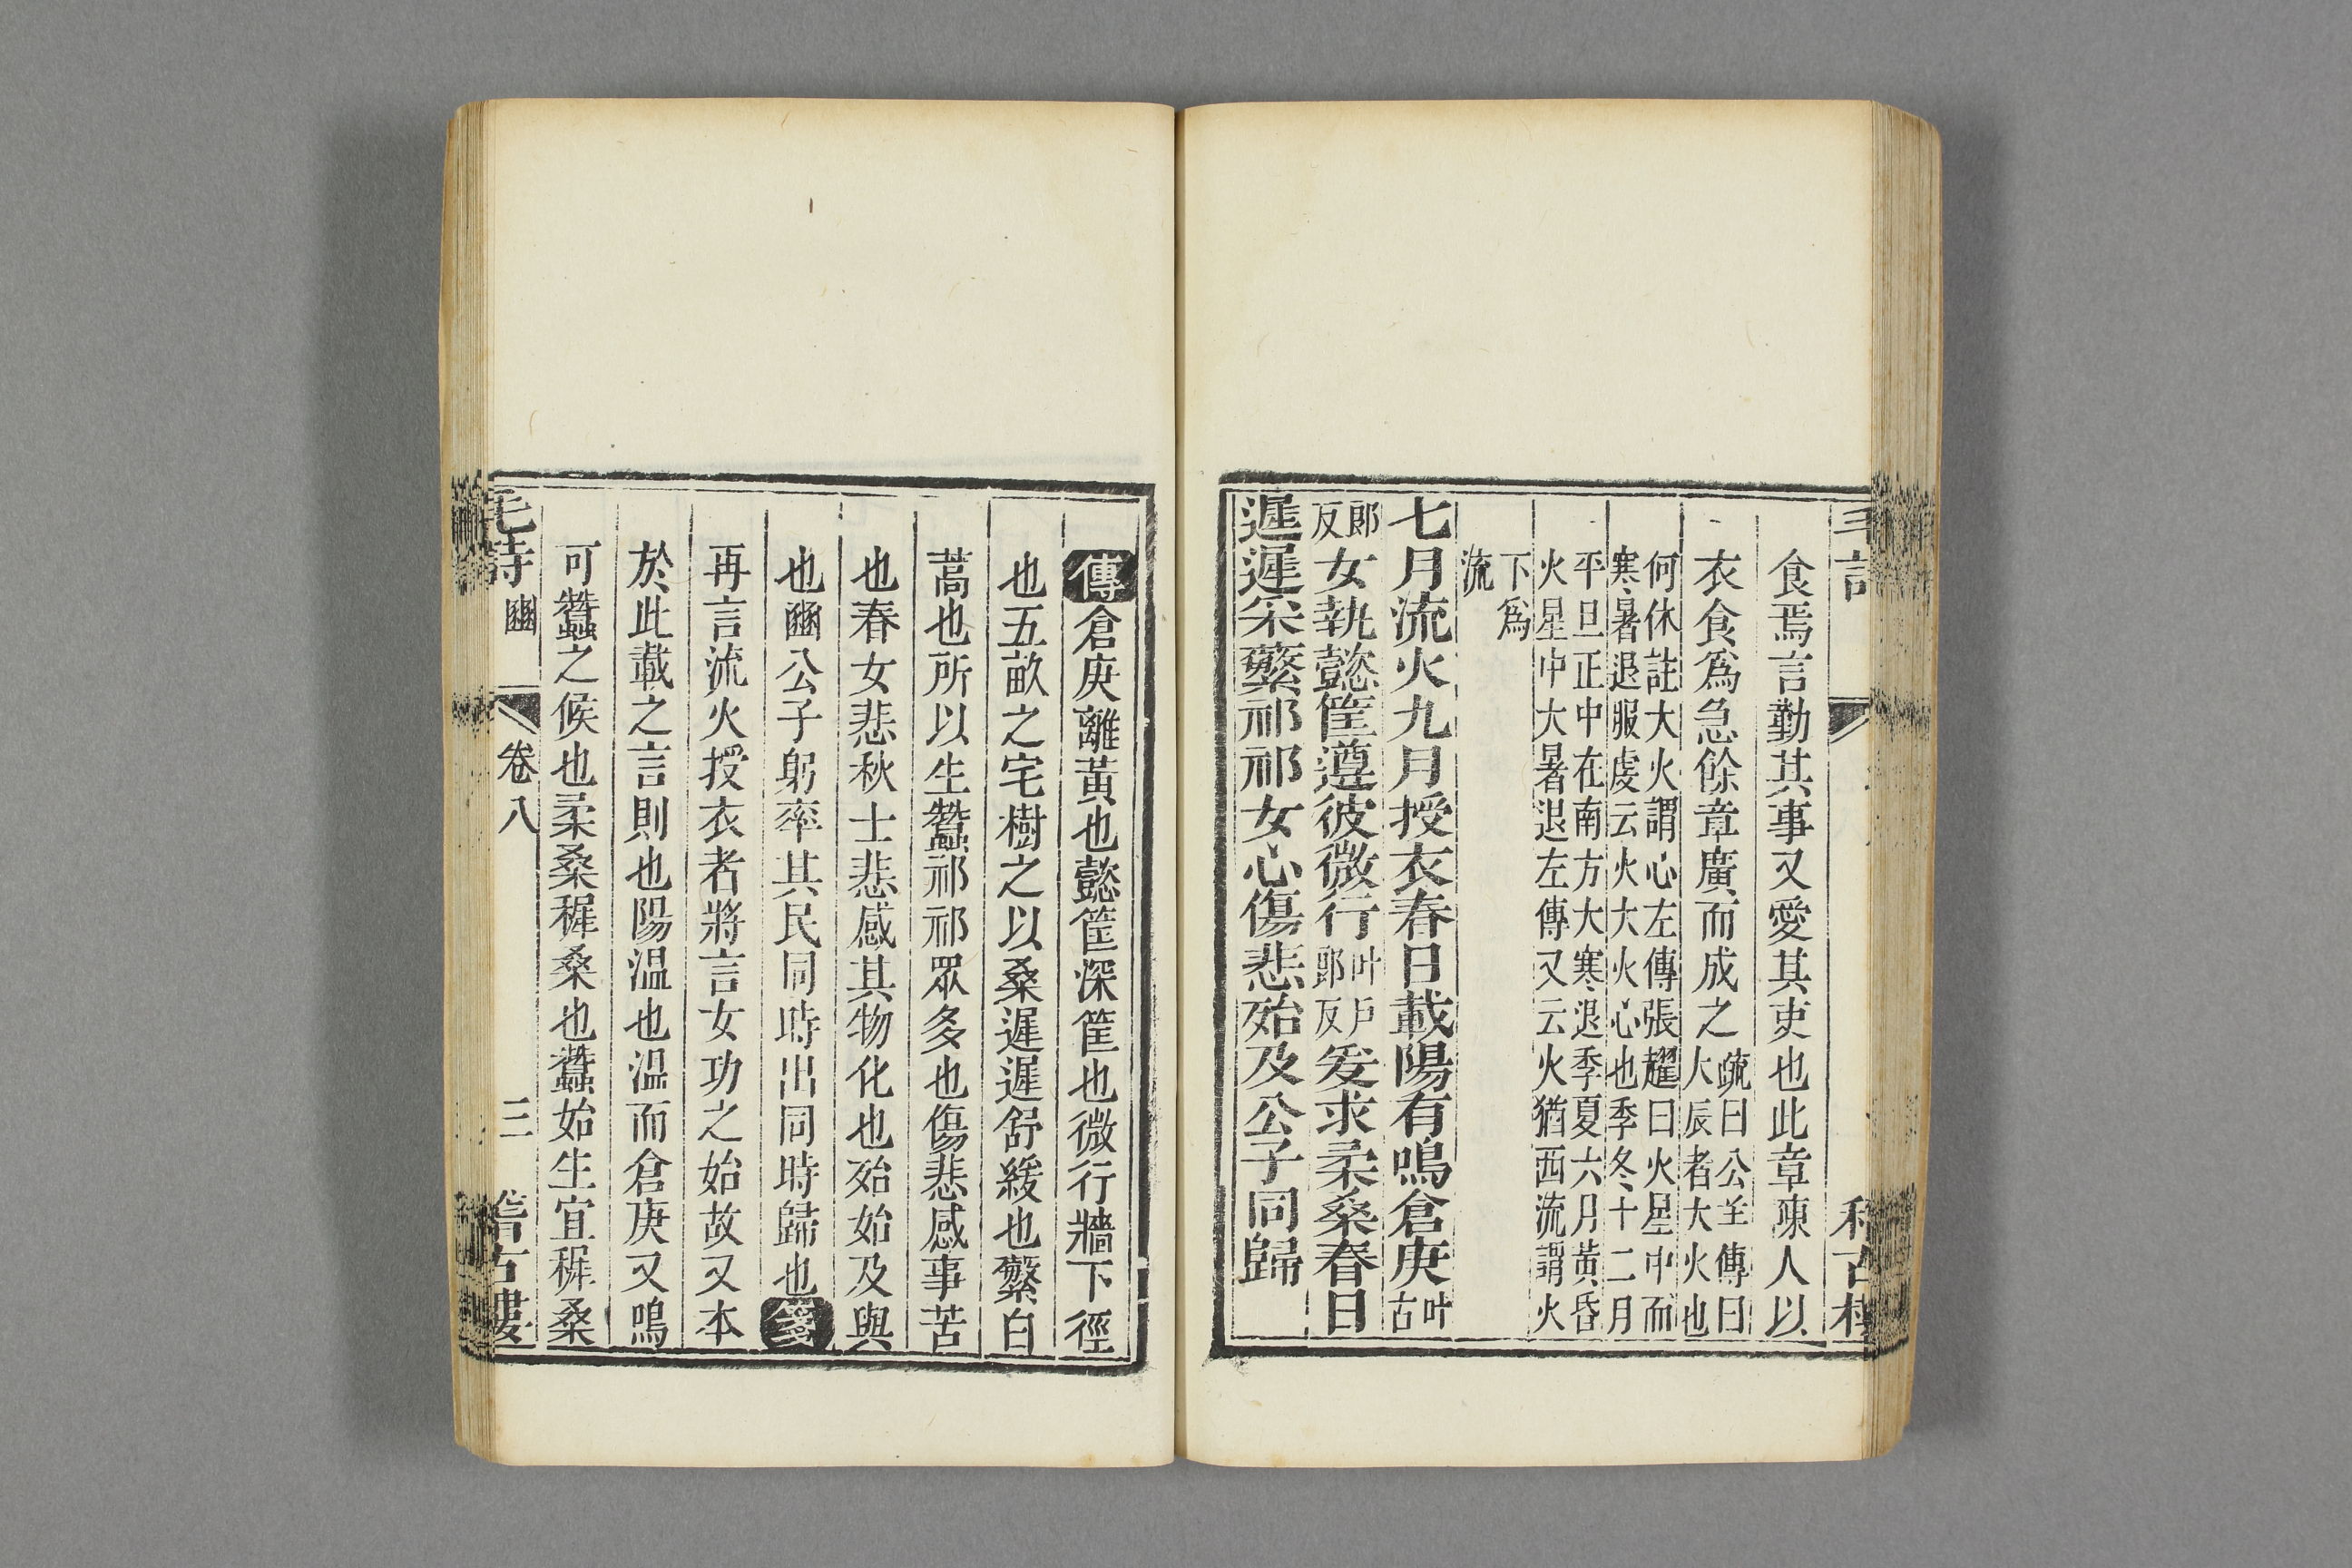 食焉言勤其事又愛其吏也此章陳人以
衣食爲急餘章廣而成之疏曰公羊傳曰
大辰者大火也
何休註大火謂心左傳張趯曰火星中而
寒暑退服虔云火大火心也季冬十二月
平旦正中在南方大寒退季夏六月黃昏
火星中大暑退左傳又云火猶西流謂火
下爲
流
七月流火九月授衣春日載陽有鳴倉庚叶古
郎反女執懿筐遵彼微行叶戶郎反爰求柔桑春日
遲遲采蘩祁祁女心傷悲殆及公子同歸
傳倉庚離黃也懿筐深筐也微行牆下徑
也五畝之宅樹之以桑遲遲舒緩也蘩白
蒿也所以生蠶祁祁眾多也傷悲感事苦
也春女悲秋士悲感其物化也殆始及與
也豳公子躬率其民同時出同時歸也箋
再言流火授衣者將言女功之始故又本
於此載之言則也陽温也温而倉庚又鳴
可蠶之候也柔桑穉桑也蠶始生宜穉桑
毛詩 豳 卷八 三 稽古樓